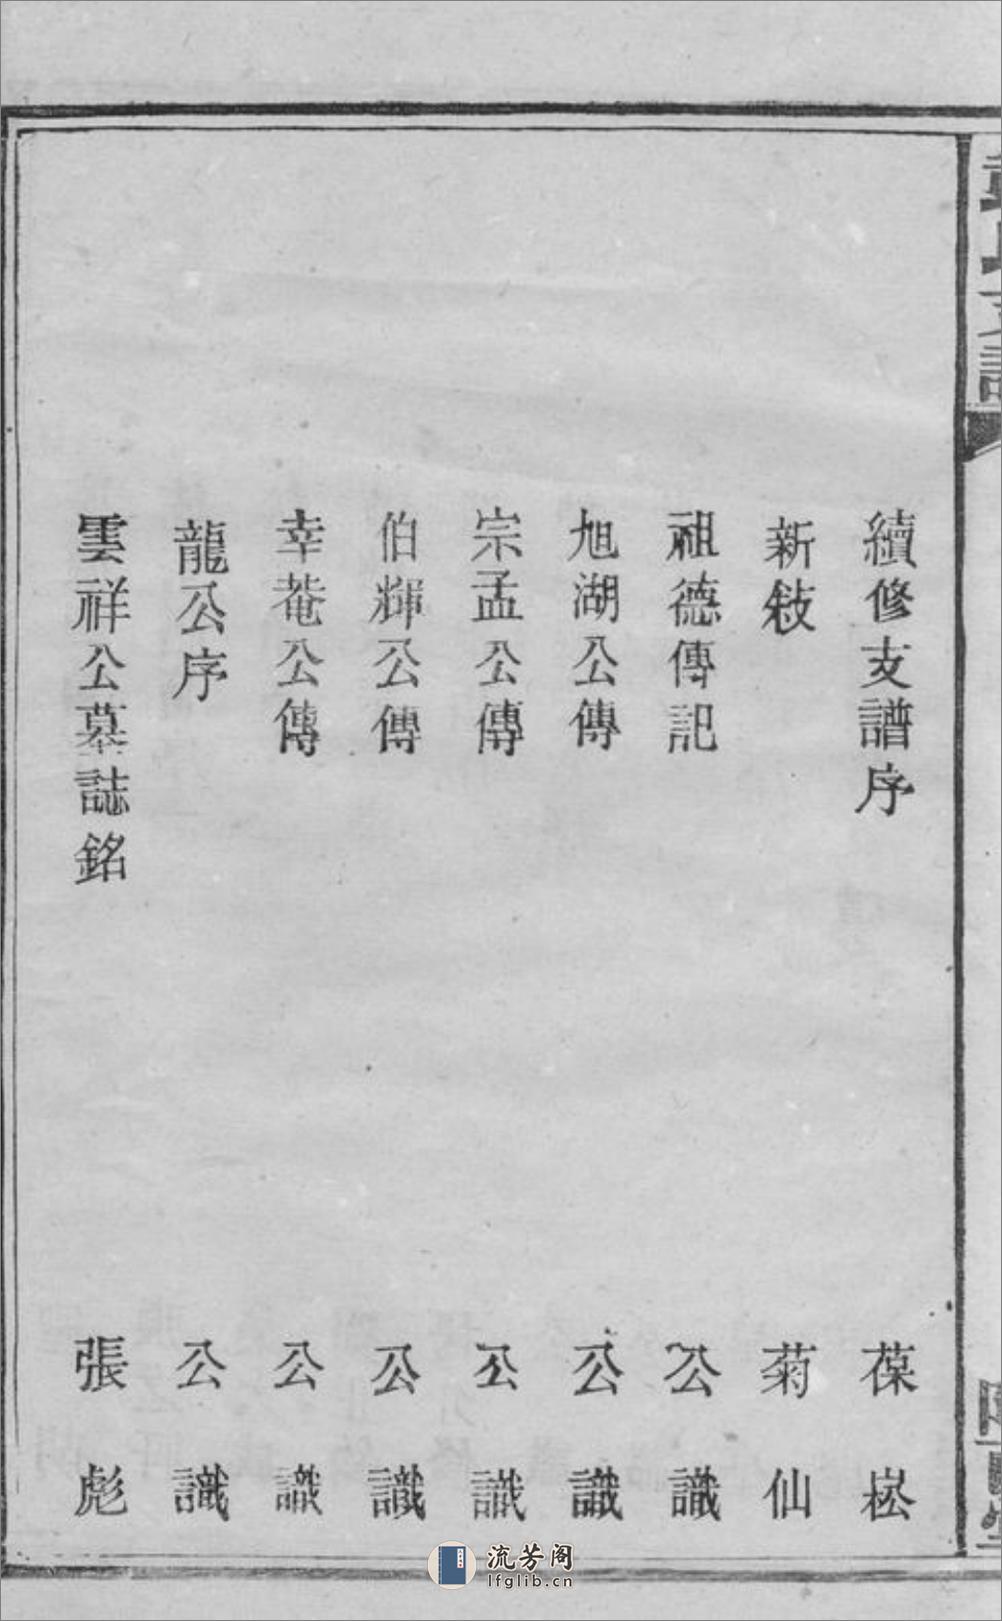 續修支譜序　葆崧
新敍　菊仙
祖德傳記　公識
旭湖公傳　公識
宗孟公傳　公識
伯輝公傳　公識
幸菴公傳　公識
龍公序　公識
雲祥公墓誌銘　張彪
流芳阁
lfglib.cn